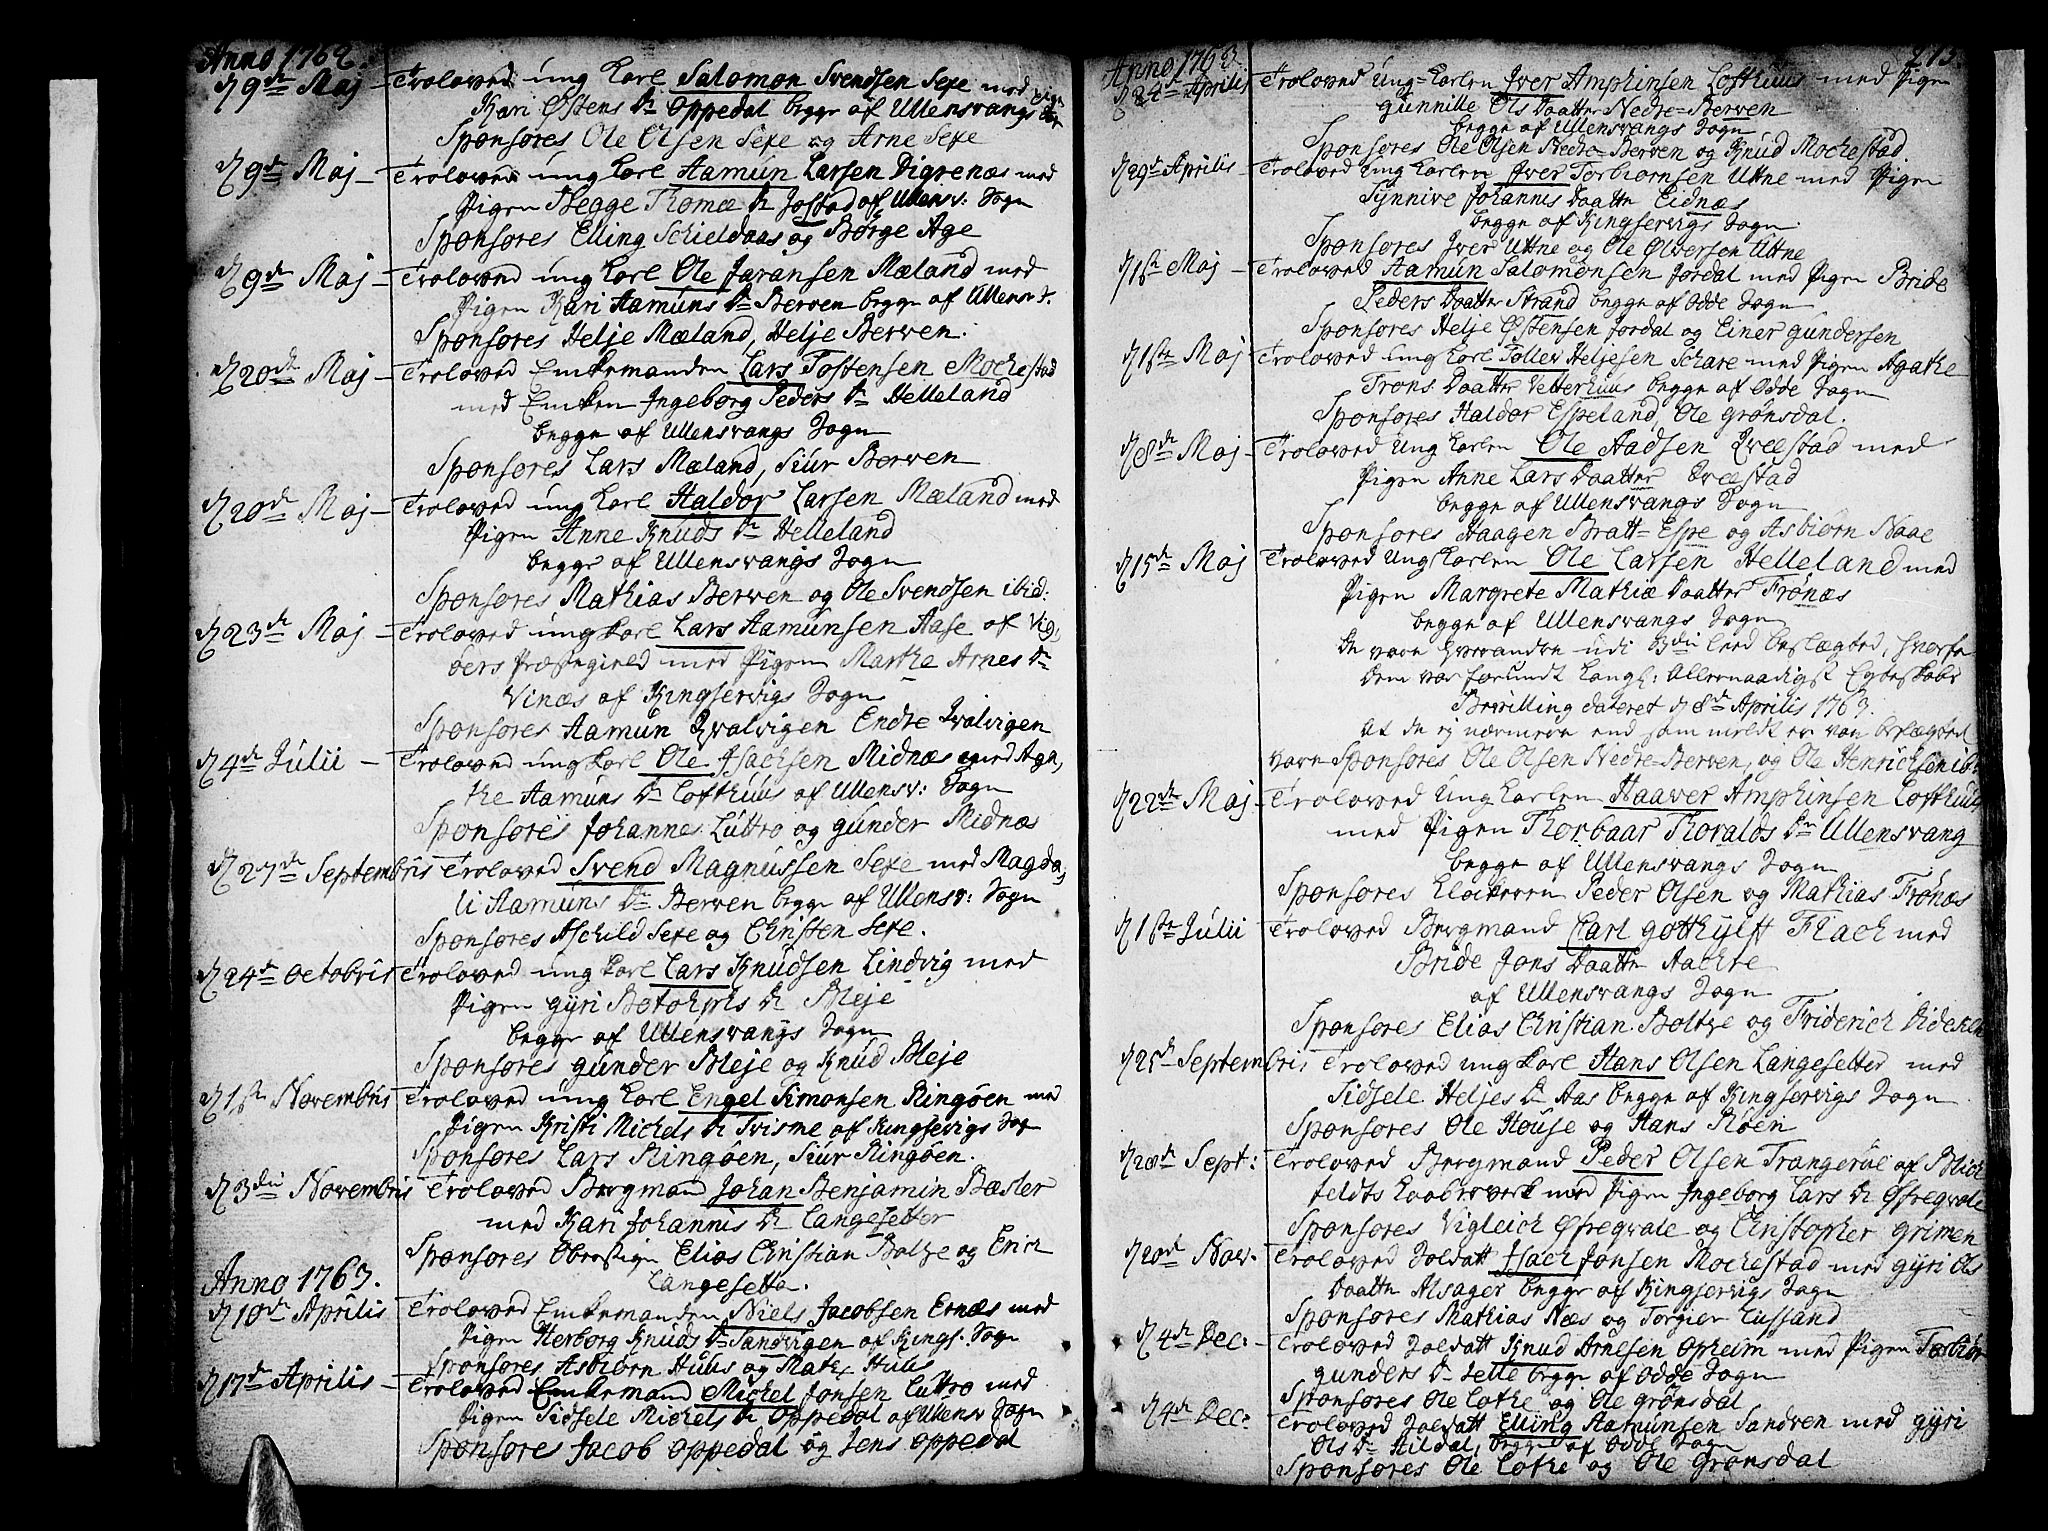 Anno 1762.
d 9de Maj – Troloved ung Karl Salomon Svendsen Sexe med
Kari Østens Dr Oppedal begge af Ullensvangs
Sponsores Ole Olsen Sexe og Arne Sexe
d 9de Maj – Troloved ung Karl Aamun Larsen Digrenæs med
Pigen Begge Thomæ Dr Jostad af Ullensv: Sogn
Sponsores Elling Schieldaas og Børge Age
d 9de Maj – Troloved ung Karl Ole Jaransen Mæland med
Pigen Kari Aamuns Dr Berven begge af Ullensv S.
Sponsores Helje Mæland, Helje Berven.
d 20de Maj – Troloved Enkemanden Lars Tostensen Mochestad
med Enken Ingeborg Peders Dr Helleland
begge af Ullensvangs Sogn
Sponsores Lars Mæland, Siur Berven
d 20de Maj – Troloved ung Karl Haldor Larsen Mæland med
Pigen Anne Knuds Dr Helleland
begge af Ullensvangs Sogn
Sponsores Mathias Berven og Ole Svendsen ibid:
d 23de Maj – Troloved ung Karl Lars Aamunsen Aase af Vig,
øers Præstegield med Pigen Marthe Arnes Dr
Vinæs af Kingservigs Sogn
Sponsores Aamun Qvalvigen Endre Qvalvigen
d 4de Julii – Troloved ung Karl Ole Isachsen Midnæs med Aga,
the Aamuns Dr Lofthuus af Ullensv: Sogn
Sponsores Johannes Luttro og Gunder Midnæs
d 27de Septembris Troloved Svend Magnussen Sexe med Magda,
li Aamuns Dr Berven begge af Ullensv: Sogn
Sponsores Aschild Sexe og Christen Sexe.
d 24de Octobris Troloved ung Karl Lars Knudsen Lindvig med
Pigen Gyri Botolphs Dr Bleje
begge af Ullensvangs Sogn
Sponsores Gunder Bleje og Knud Bleje
d 1ste Novembris Troloved ung Karl Engel Simonsen Ringøen med
Pigen Kristi Michels Dr Tvisme af Kingservigs Sogn
Sponsores Lars Ringøen, Siur Ringøen.
d 3die Novembris Troloved Bergmand Johan Benjamin Bæsler
med Kari Johannis Dr Langesetter
Sponsores Obrostigen Elias Christian Boltze og Erich
Langesetter.
Anno 1763.
d 10de Aprilis Troloved Enkemanden Niels Jacobsen Ernæs med
Pigen Herborg Knuds Dr Sandvigen af Kings: Sogn
Sponsores Asbiørn Huus og Math: Huus
d 17de Aprilis – Troloved Enkemand Michel Jonsen Luttro med
Pigen Sidsele Michels Dr Oppedal af Ullensv Sogn
Sponsore Jacob Oppedal og Jens Oppedal
Anno 1763. 275.
d 24de Aprilis Troloved Ung-Karlen Iver Amphinsen Lofthuus med Pigen
Gunnille Ols Daatter Nedre-Berven
begge af Ullensvangs Sogn
Sponsores Ole Olsen Nedre-Berven og Knud Mochestad.
d 29de Aprilis – Troloved Ung Karlen Iver Torbiornsen Uttne med Pigen
Synnive Johannis Daatter Eidnæs
begge af Kingservigs Sogn
Sponsores Iver Uttne og Ole Olversen Uttne
d 1ste Maj – Troloved Aamun Salomonsen Jordal med Pigen Bride
Peders Daatter Strand begge af Odde Sogn
Sponsores Helje Østensen Jordal og Einer Gundersen
d 1ste Maj – Troloved ung Karl Tollev Heljesen Schare med Pigen Agathe
Trons Daatter Vetterhuus begge af Odde Sogn
Sponsores Haldor Espeland, Ole Grønsdal.
d 8de Maj – Troloved Ung Karlen Ole Aadsen Qvestad med
Pigen Anne Lars Daatter Qvestad
begge af Ullensvangs Sogn
Sponsores Haagen Bratt-Espe og Asbiørn Naae
d 15de Maj Troloved Ung Karlen Ole Larsen Helleland med
Pigen Margrete Mathiæ Daatter Frønæs
begge af Ullensvangs Sogn
De vare hverandre udi 3die Leed beslægted, hvorfor
dem var forundt Kongl: Allernaadigst Egteskabs
Bevilling dateret d 8de Aprilis 1763.
At de ej nærmere end som meldt er var beslægted
vare Sponsores Ole Olsen Nedre-Berven, og Ole Henrichsen ib:
d 22de Maj – Troloved Ung Karlen Haaver Amphinsen Lofthuus
med Pigen Thorbaar Thoralds Dr Ullensvang
begge af Ullensvangs Sogn
Sponsores Klockeren Peder Olsen og Mathias Frønæs
d 1ste Julii – Troloved Bergmand Carl Gothylft Flach med
Bride Jons Daatter Aachre
af Ullensvangs Sogn
Sponsores Elias Christian Boltze og Friderich Dideken
d 25de Septembris Troloved ung Karl Hans Olsen Langesetter med
Sidsele Heljes Dr Aas begge af Kingservigs Sogn
Sponsores Ole House og Hans Røen
d 28de Sept: Troloved Bergmand Peder Olsen Trangerue af Blich
feldts Kaabroverk med Pigen Ingeborg Lars Dr Øfregvale
Sponsores Vigleich Øfregvale og Christopher Grimen
d 20de Nov. Troloved Soldatt Isach Jonsen Mochestad med Gyri Ols
Daatter Alsager begge af Kingservigs Sogn
Sponsores Mathias Næs og Torgier Lussand
d 4de Dec: – Troloved Soldatt Knud Arnesen Opheim med Pigen Torbiør
Gunders Dr Jelte begge af Odde Sogn
Sponsores Ole Lothe og Ole Grønsdal
d 4de Dec: Troloved Soldatt Elling Aamunsen Sandven med Gyri
Ols Dr Hildal, begge af Odde Sogn
Sponsores Ole Lothe og Ole Grønsdal